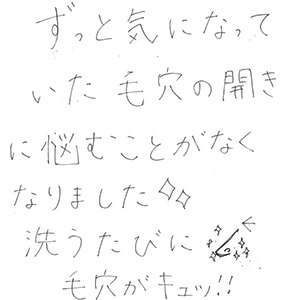 ずっと気になって
いた毛穴の開き
に悩むことがなく
なりました✧✧
洗うたびに
毛穴がキュッ!!